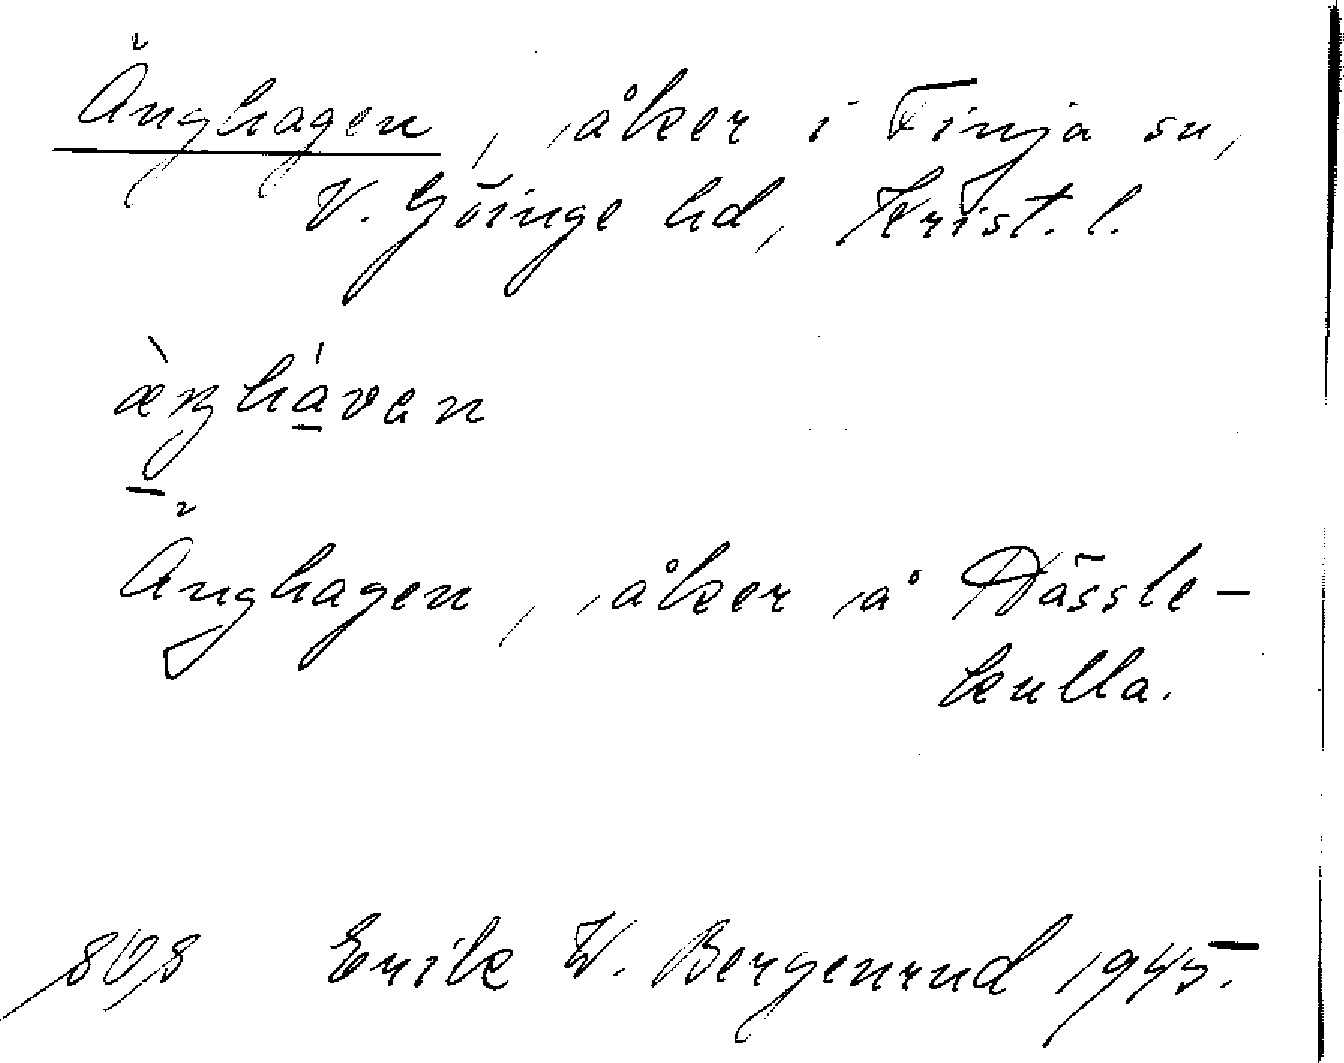 Änghagen, åker i Finja sn,
V. Göinge hd, Krist. l.
ä̀ŋháven
Änghagen, åker å Nässle-
kulla.
808 Erik W. Bergenrud 1945.